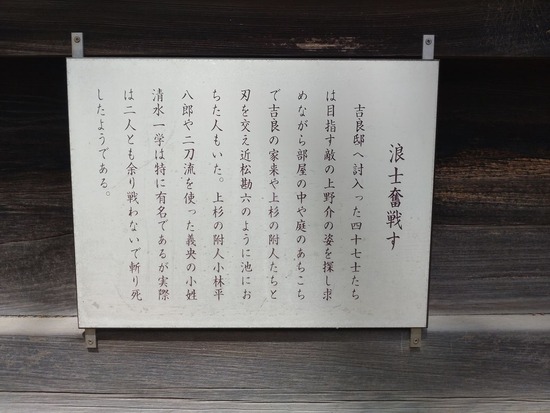 浪士奮戦す
吉良邸へ討入った四十七士たち
は目指す敵の上野介の姿を探し求
めながら部屋の中や庭のあちこち
で吉良の家来や上杉の附人たちと
刃を交え近松勘六のように池にお
ちた人もいた。上杉の附人小林平
八郎や二刀流を使った義央の小姓
清水一学は特に有名であるが実際
は二人とも余り戦わないで斬り死
したようである。